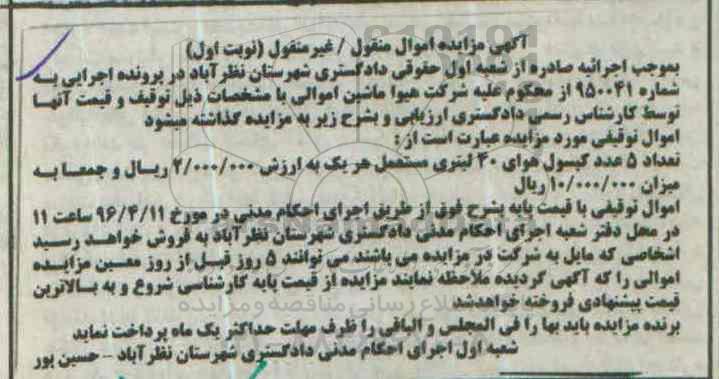 آگهی مزایده اموال منقول / غیرمنقول (نوبت اول)
بموجب اجرائیه صادره از شعبه اول حقوقی دادگستری شهرستان نظرآباد در پرونده اجرایی به
شماره ۹۵۰۰۴۱ از محکوم علیه شرکت هیوا ماشین اموالی با مشخصات ذیل توقیف و قیمت آنها
توسط کارشناس رسمی دادگستری ارزیابی و بشرح زیر به مزایده گذاشته میشود
اموال توقیفی مورد مزایده عبارت است از :
تعداد ۵ عدد کپسول هوای ۴۰ لیتری مستعمل هر یک به ارزش ۲/۰۰۰/۰۰۰ ریال و جمعا به
میزان ۱۰/۰۰۰/۰۰۰ ریال
اموال توقیفی با قیمت پایه بشرح فوق از طریق اجرای احکام مدنی در مورخ ۹۶/۴/۱۱ ساعت ۱۱
در محل دفتر شعبه اجرای احکام مدنی دادگستری شهرستان نظرآباد به فروش خواهد رسید
اشخاصی که مایل به شرکت در مزایده می باشند می توانند ۵ روز قبل از روز معین مزایده
اموالی را که آگهی گردیده ملاحظه نمایند مزایده از قیمت پایه کارشناسی شروع و به بالاترین
قیمت پیشنهادی فروخته خواهدشد
برنده مزایده باید بها را فی المجلس و الباقی را ظرف مهلت حداکثر یک ماه پرداخت نماید
شعبه اول اجرای احکام مدنی دادگستری شهرستان نظرآباد – حسین پور